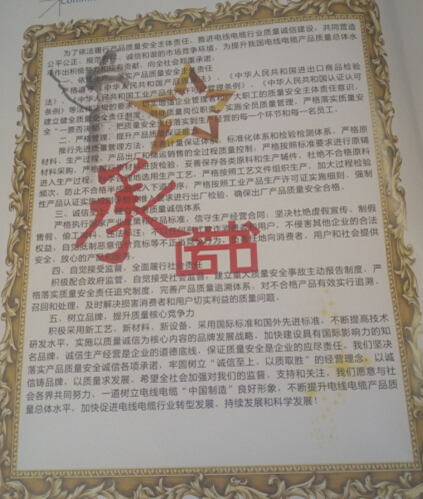 为了依法履行产品质量安全主体责任，推进电线电缆行业质量诚信建设，共同营造
公平公正、规范有序、诚信和谐的市场竞争环境，为提升我国电线电缆产品质量总体水
平作出积极努力和应有贡献，向全社会郑重承诺。
《中华人民共和国进出口商品检验
法》、《中华人民共和国工业产品生产许可证管理条例》、《中华人民共和国认证认可
条例》等法律法规的要求
建立健全质量安全责任制度 质量岗位职责，实施全员质量管理，严格落实质量安
全“一票否决制”，把质量安全责任落实到生产经营的每一个环节和每一名员工。
二、严格管理，提升产品质量保证能力
推行先进质量管理方法 标准化体系和检验检测体系，严格原
材料、生产过程、产品出厂和运输销售的全过程质量控制，严格按照标准要求进行原辅
材料采购，严格 检验，妥善保存各类原料和生产辅件，杜绝不合格原料
进入生产过程， 选用生产工艺，严格按照工艺文件组织生产，加大过程检验
频次，防止不合格半成品进入下道工序，严格按照工业产品生产许可证实施细则、强制
性产品认证实施规则 要求进行出厂检验，确保出厂产品质量安全合格。
三、诚信 质量诚信体系
严格执行国家产业 产品标准，信守生产经营合同，坚决杜绝虚假宣传、制假
售假、偷工减料 用户，不侵害其他企业的合法
权益，自觉抵制恶意低价竞标等不正当竞争行为 地向消费者、用户和社会提供
安全、放心的产品
四、自觉接受监督，全面履行社会责任
积极配合政府监管，自觉接受社会监督，建立重大质量安全事故主动报告制度，严
格落实质量安全责任追究制度，完善产品质量追溯体系，对不合格产品有效实行追溯、
召回和处理，及时解决损害消费者和用户切实利益的质量问题。
五、树立品牌，提升质量核心竞争力
积极采用新工艺、新材料、新设备，采用国际标准和国外先进标准，不断提高技术
研发水平，实施以质量诚信为核心内容的品牌发展战略，加快建设具有国际影响力的知
名品牌，诚信生产经营是企业的道德底线，保证质量安全是企业的应尽责任，我们坚决
落实产品质量安全诚信各项承诺，牢固树立“诚信至上，以质取胜”的经营理念，以诚
信铸品牌，以质量求发展，希望全社会加强对我们的监督、支持和关注，我们愿意与社
会各界共同努力，一道树立电线电缆“中国制造”良好形象，不断提升电线电缆产品质
量总体水平，加快促进电线电缆行业转型发展、持续发展和科学发展！
承
诺
书